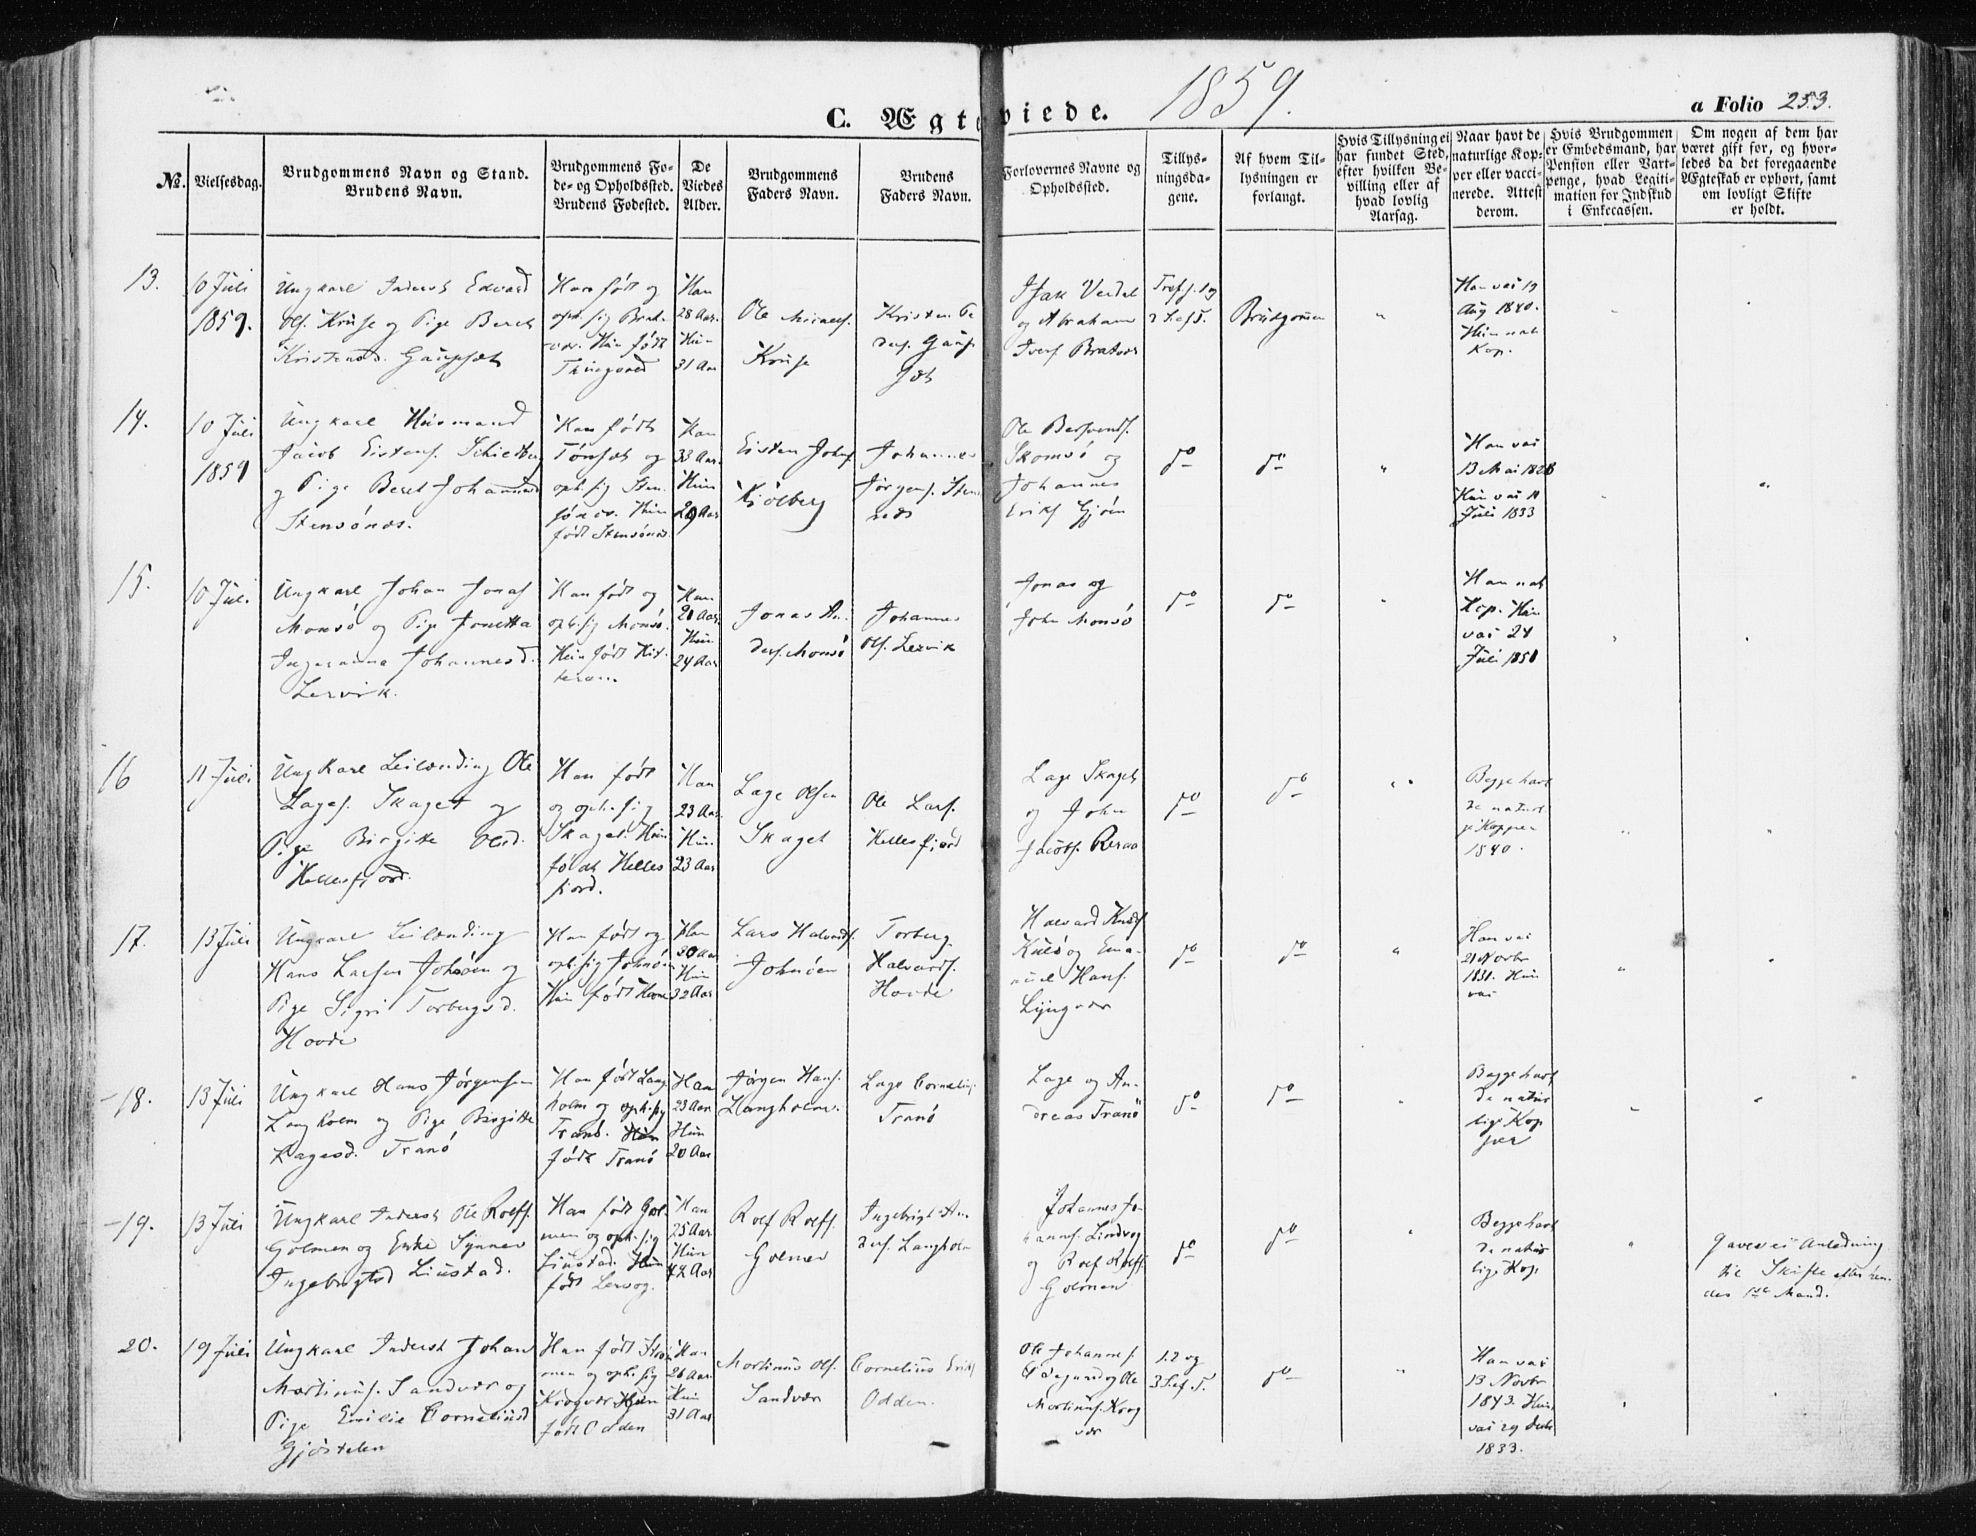 C. Ægteviede. 1859.
a Folio 253.
No.
Vielsesdag.
Brudgommens Navn og Stand.
Brudens Navn.
Brudgommens Fo-
de- og Opholdssted.
Brudens Fodested.
De
Viedes
Alder.
Brudgommens
Faders Navn.
Brudens
Faders Navn.
Forlovernes Navne og
Opholdssted.
Tillys-
ningsda-
gene.
Af hvem Til-
lysningen er
forlangt.
Hvis Tillysning ei
har fundet Sted,
efter hvilken Be-
villing eller af
hvad lovlig
Aarsag.
Naar havt de
naturlige Kop-
per eller vacci-
nerede. Attest
derom.
Hvis Brudgommen
er Embedsmand, har
Pension eller Vart-
penge, hvad Legiti-
mation for Indskud
i Enkecassen.
Om nogen af dem har
været gift for, og hvor-
ledes da det foregaaende
Ægteskab er ophort, samt
om lovligt Skifte
er holdt.
13.
10 Juli
1859.
Ungkarl Inderst Edvard
Ols. Kruse og Pige Beret
Kristensd.
Han født og
oph. sig Brat-
vær. Hun født
Han
28 Aar.
Hun
31 Aar
Ole
Kruse
Kristen Pe
ders.
Isak Verdal
og Abraham
Ivers. Bratvær
Brudgomen
"
Han vac 19
Aug 1840.
Hun nat
Kop.
14.
10 Juli
1859
Ungkarl Husmand
Jacob Eistens.
og Pige Beret Johannesd
Stensönes.
Han født
Tønset og
oph. sig Sten-
sönes. Hun
født Stensönes.
Han
33 Aar.
Hun
29 Aar
Eisten Johs.
Kjölberg
Johannes
Jørgens.
Ole
Skomsö og
Johannes
Eriks. Gjöen
do
do
"
Han vac
13 Mai 1828
Hun vac 11
Juli 1833
"
15.
10 Juli
Ungkarl Johan Jonas.
Monsö og Pige Jonetta
Ingeranna Johannesd.
Lervik.
Han født og
oph. sig Monsö.
Hun født Hit-
teren.
Han
20 Aar
Hun
24 Aar
Jonas An
ders. Monsö
Johannes
Ols. Lervik
Jonas og
John Monsö
do
do
"
Han nat
Kop. Hun
vac 24
Juli 1851
16
11 Juli
Ungkarl Leilænding Ole
Lages. Skaget og
Pige Birgitte Olsd.
Hellesfjord.
Han født
og oph. sig
Skaget. Hun
født Helles
fjord.
Han
23 Aar.
Hun
23 Aar
Lage Olsen
Skaget
Ole Lars.
Hellesfjord
Lage Skaget
og John
Jacobs.
do
do
"
Begge havt
de naturl
ge Kopper
1840.
17.
13 Juli
Ungkarl Leilænding
Hans Larsen Johnöen og
Pige Sigri Torbergsd.
Hovde
Han født og
oph. sig Johnöen
Hun født Hevne
Han
20 Aar
Hun
32 Aar
Lars Halvards.
Johnöen
Torberg
Halvards.
Hovde
Halvard Knuds.
Kulsö og Ema-
nuel Hans.
Lyngvær
do
do
"
Han vac
21 Novbr
1831. Hun
vac
18.
13 Juli
Ungkarl Hans Jørgensen
Langholm og Pige Birgitte
Lagesd. Tranö
Han født Lang
holm og oph. sig
Tranö. Hun
født Tranö
Han
23 Aar
Hun
20 Aar
Jørgen Hans.
Langholm.
Lage Cornelius.
Tranö
Lage og An-
dreas Tranö
do
do
Begge havt
de natur
lige Kop
per
19.
13 Juli
Ungkarl Inderst Ole Rolfs.
Golmen og Enke Synnev
Ingebrigtsd Liustad.
Han født Gol-
men og oph. sig
Liustad. Hun
født Lervog.
Han
25 Aar
Hun
44 Aar
Rolf Rolfs.
Golmen
Ingebrigt An
ders. Langholm
Johannes Jo-
hannes. Lindvog
og Rolf Rolfs.
Golmen
do
do
Begge havt
de natur
lige Kop.
Gaves ei Anledning
til Skifte efter hen-
des 1ste Mand.
20.
19 Juli
Ungkarl Inderst Johan
Martinus. Sandvær og
Pige Emilie Corneliusd
Gjöstelen
Han født
oph. sig
Krogvær Hun
født Odden
Han
26 Aar
Hun
31 Aar
Martinus Ols.
Sandvær
Cornelius Eriks.
Odden.
Ole Johannes.
Ødegaard og Ole
Martinus. Krog
vær
1. 2 og
3 S. ef. T.
do
"
Han vac
13 Novbr
1843. Hun
vac 29 Decbr
1833.